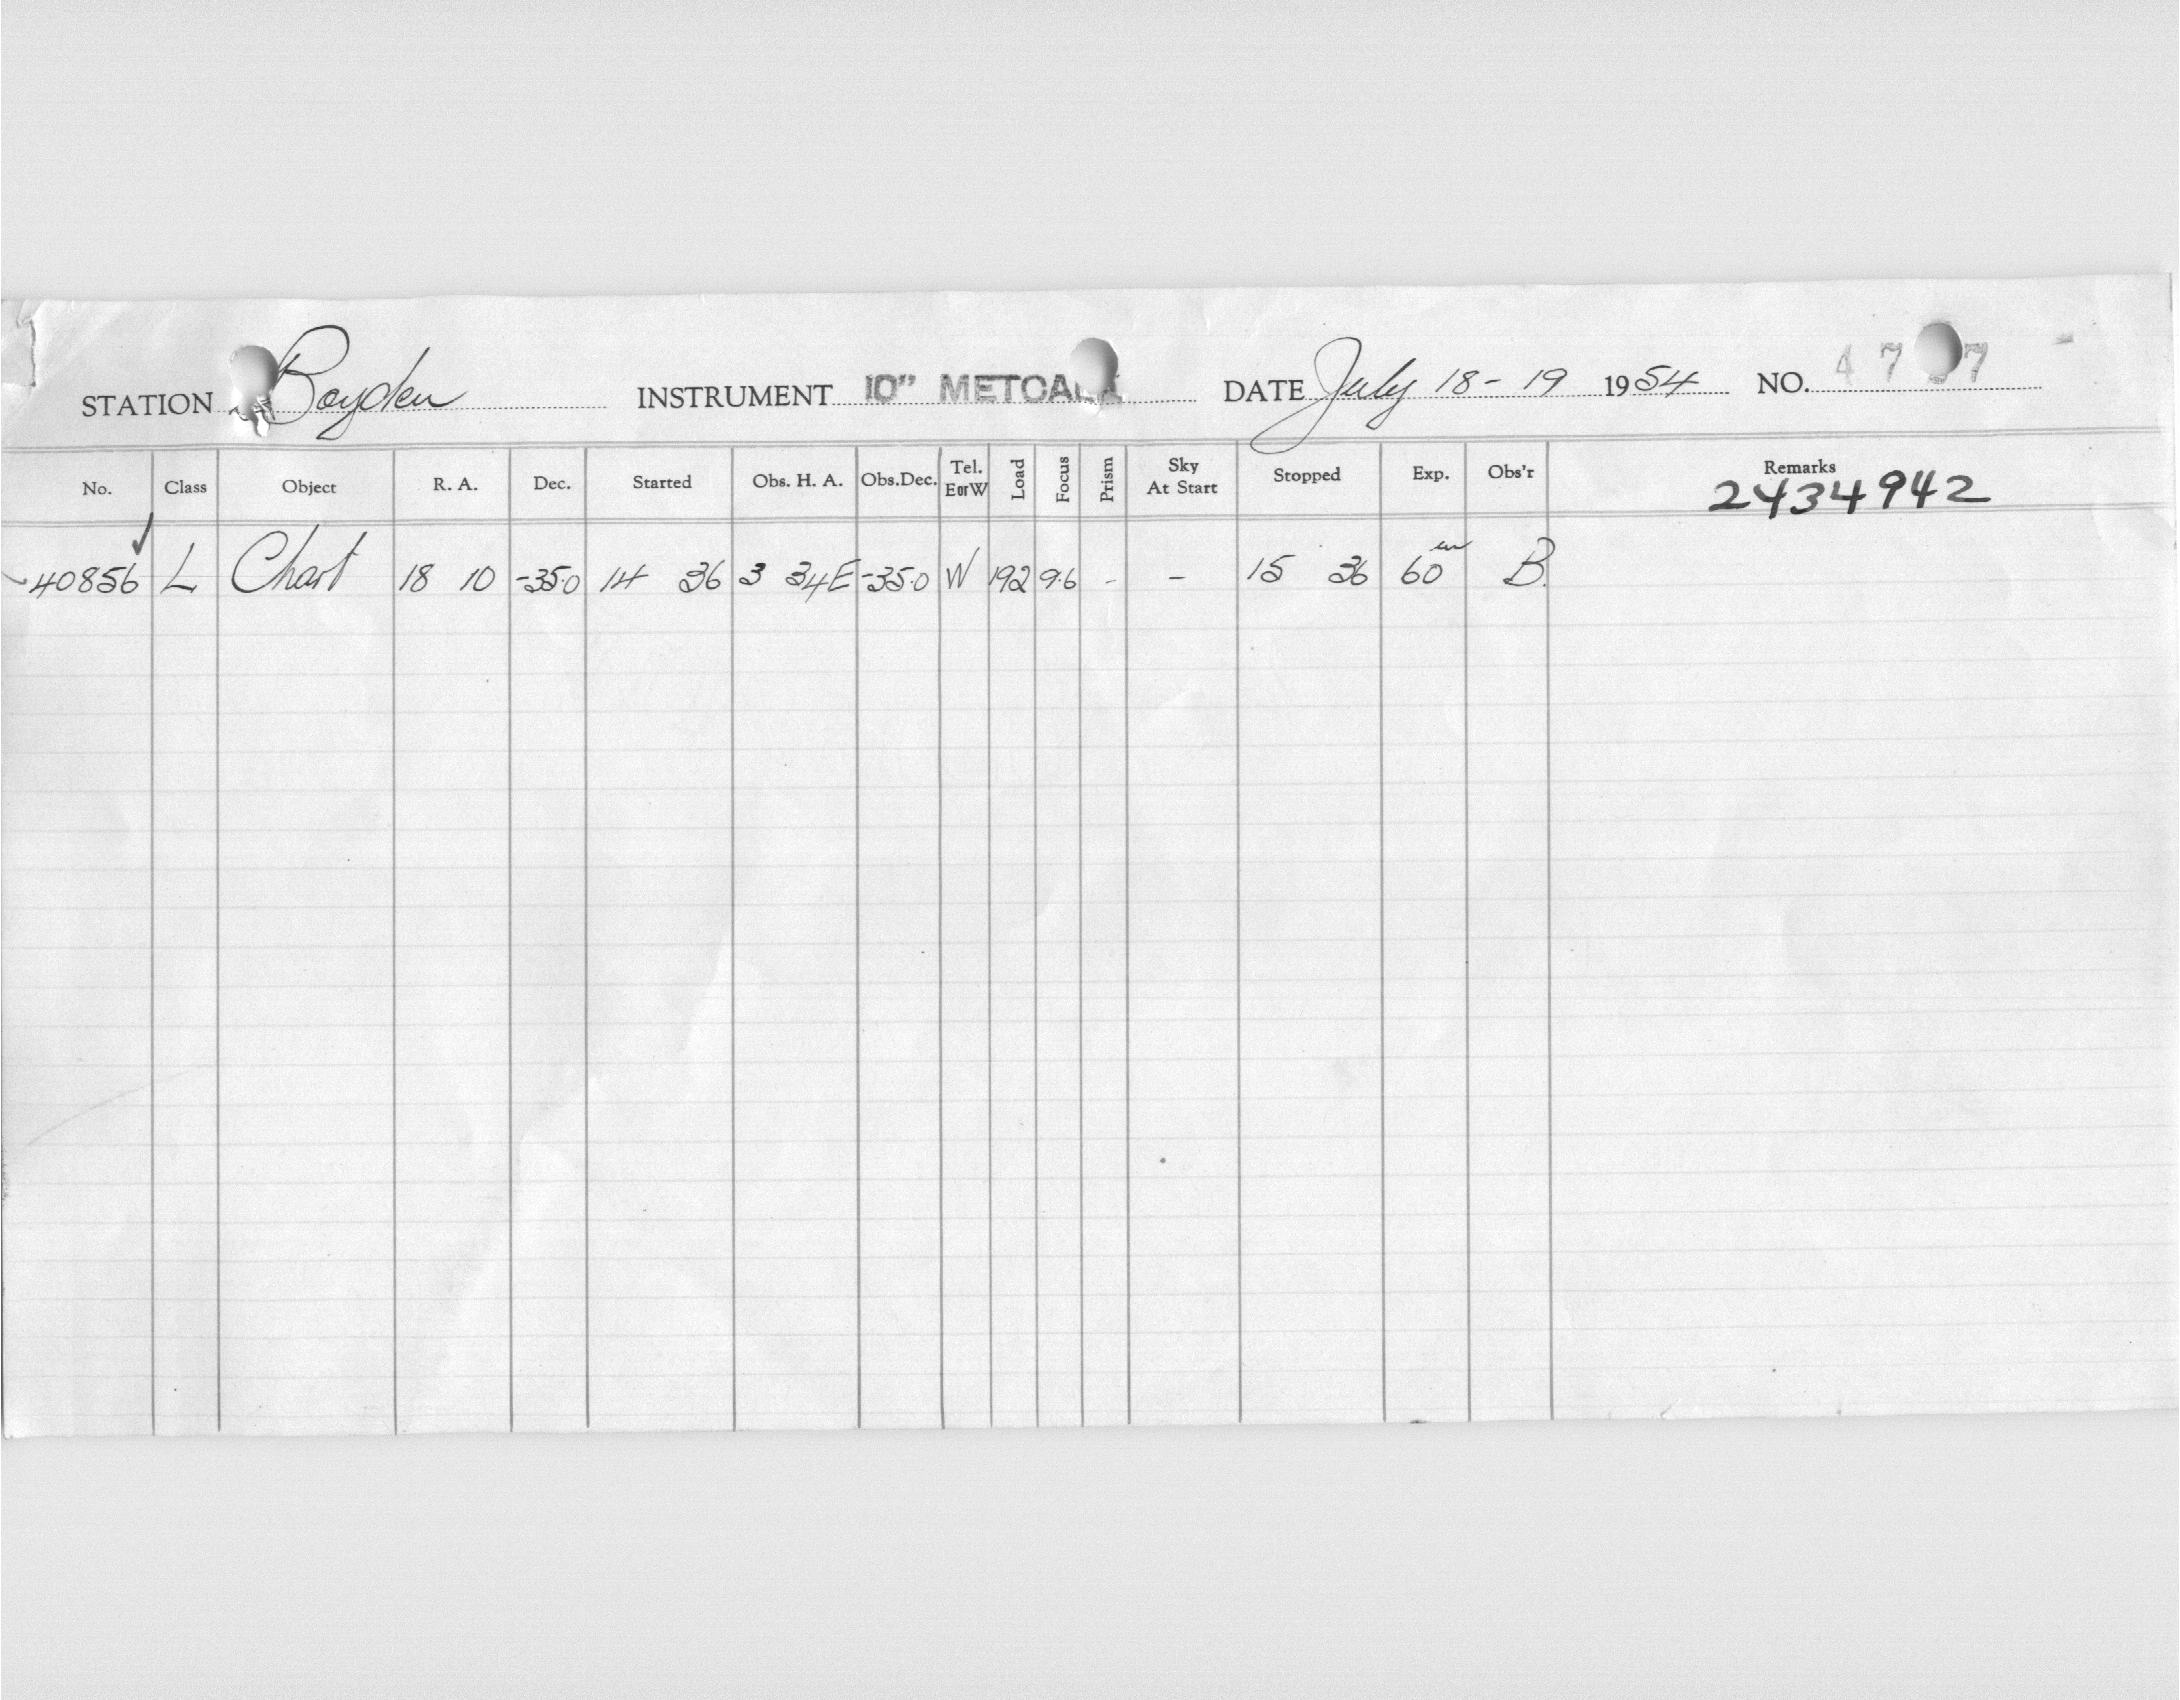 STATION Boyden INSTRUMENT 10" METCALF DATE July 18-19 1954 NO.
No. Class Object R. A. Dec. Started Obs. H. A. Obs.Dec. Tel. E or W Load Focus Prism Sky At Start Stopped Exp. Obs'r Remarks
2434942
40856 L Chart 18 10 -35.0 14 36 3 34E -35.0 W 192 9.6 - - 15 36 60m B.